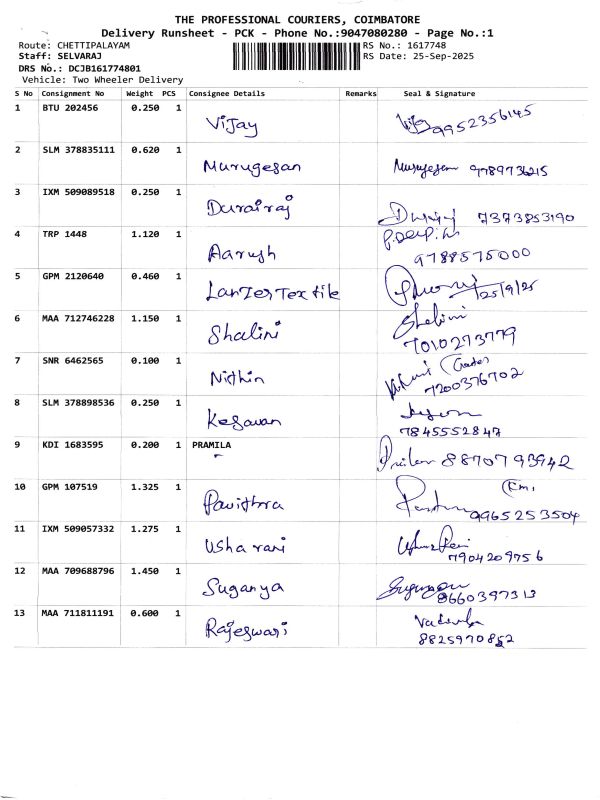 THE PROFESSIONAL COURIERS, COIMBATORE
Delivery Runsheet - PCK - Phone No.:9047080280 - Page No.:1
Route: CHETTIPALAYAM RS No.: 1617748
Staff: SELVARAJ RS Date: 25-Sep-2025
DRS No.: DCJB161774801
Vehicle: Two Wheeler Delivery
S No Consignment No Weight PCS Consignee Details Remarks Seal & Signature
1 BTU 202456 0.250 1 Vijay 9952356145
2 SLM 378835111 0.620 1 Murugesan Murugesan 9789736215
3 IXM 509089518 0.250 1 Durairaj 7373853190
4 TRP 1448 1.120 1 Aarush 9788575000
5 GPM 2120640 0.460 1 LanZer Textile 25/9/25
6 MAA 712746228 1.150 1 Shalini Shalini 7010273779
7 SNR 6462565 0.100 1 Nithin 7200376702
8 SLM 378898536 0.250 1 Kesavan 7845552847
9 KDI 1683595 0.200 1 PRAMILA 8870793942
10 GPM 107519 1.325 1 Pavithra 9965253504
11 IXM 509057332 1.275 1 Usha rani 7904209756
12 MAA 709688796 1.450 1 Suganya 8660397313
13 MAA 711811191 0.600 1 Rajeswari 8825970852